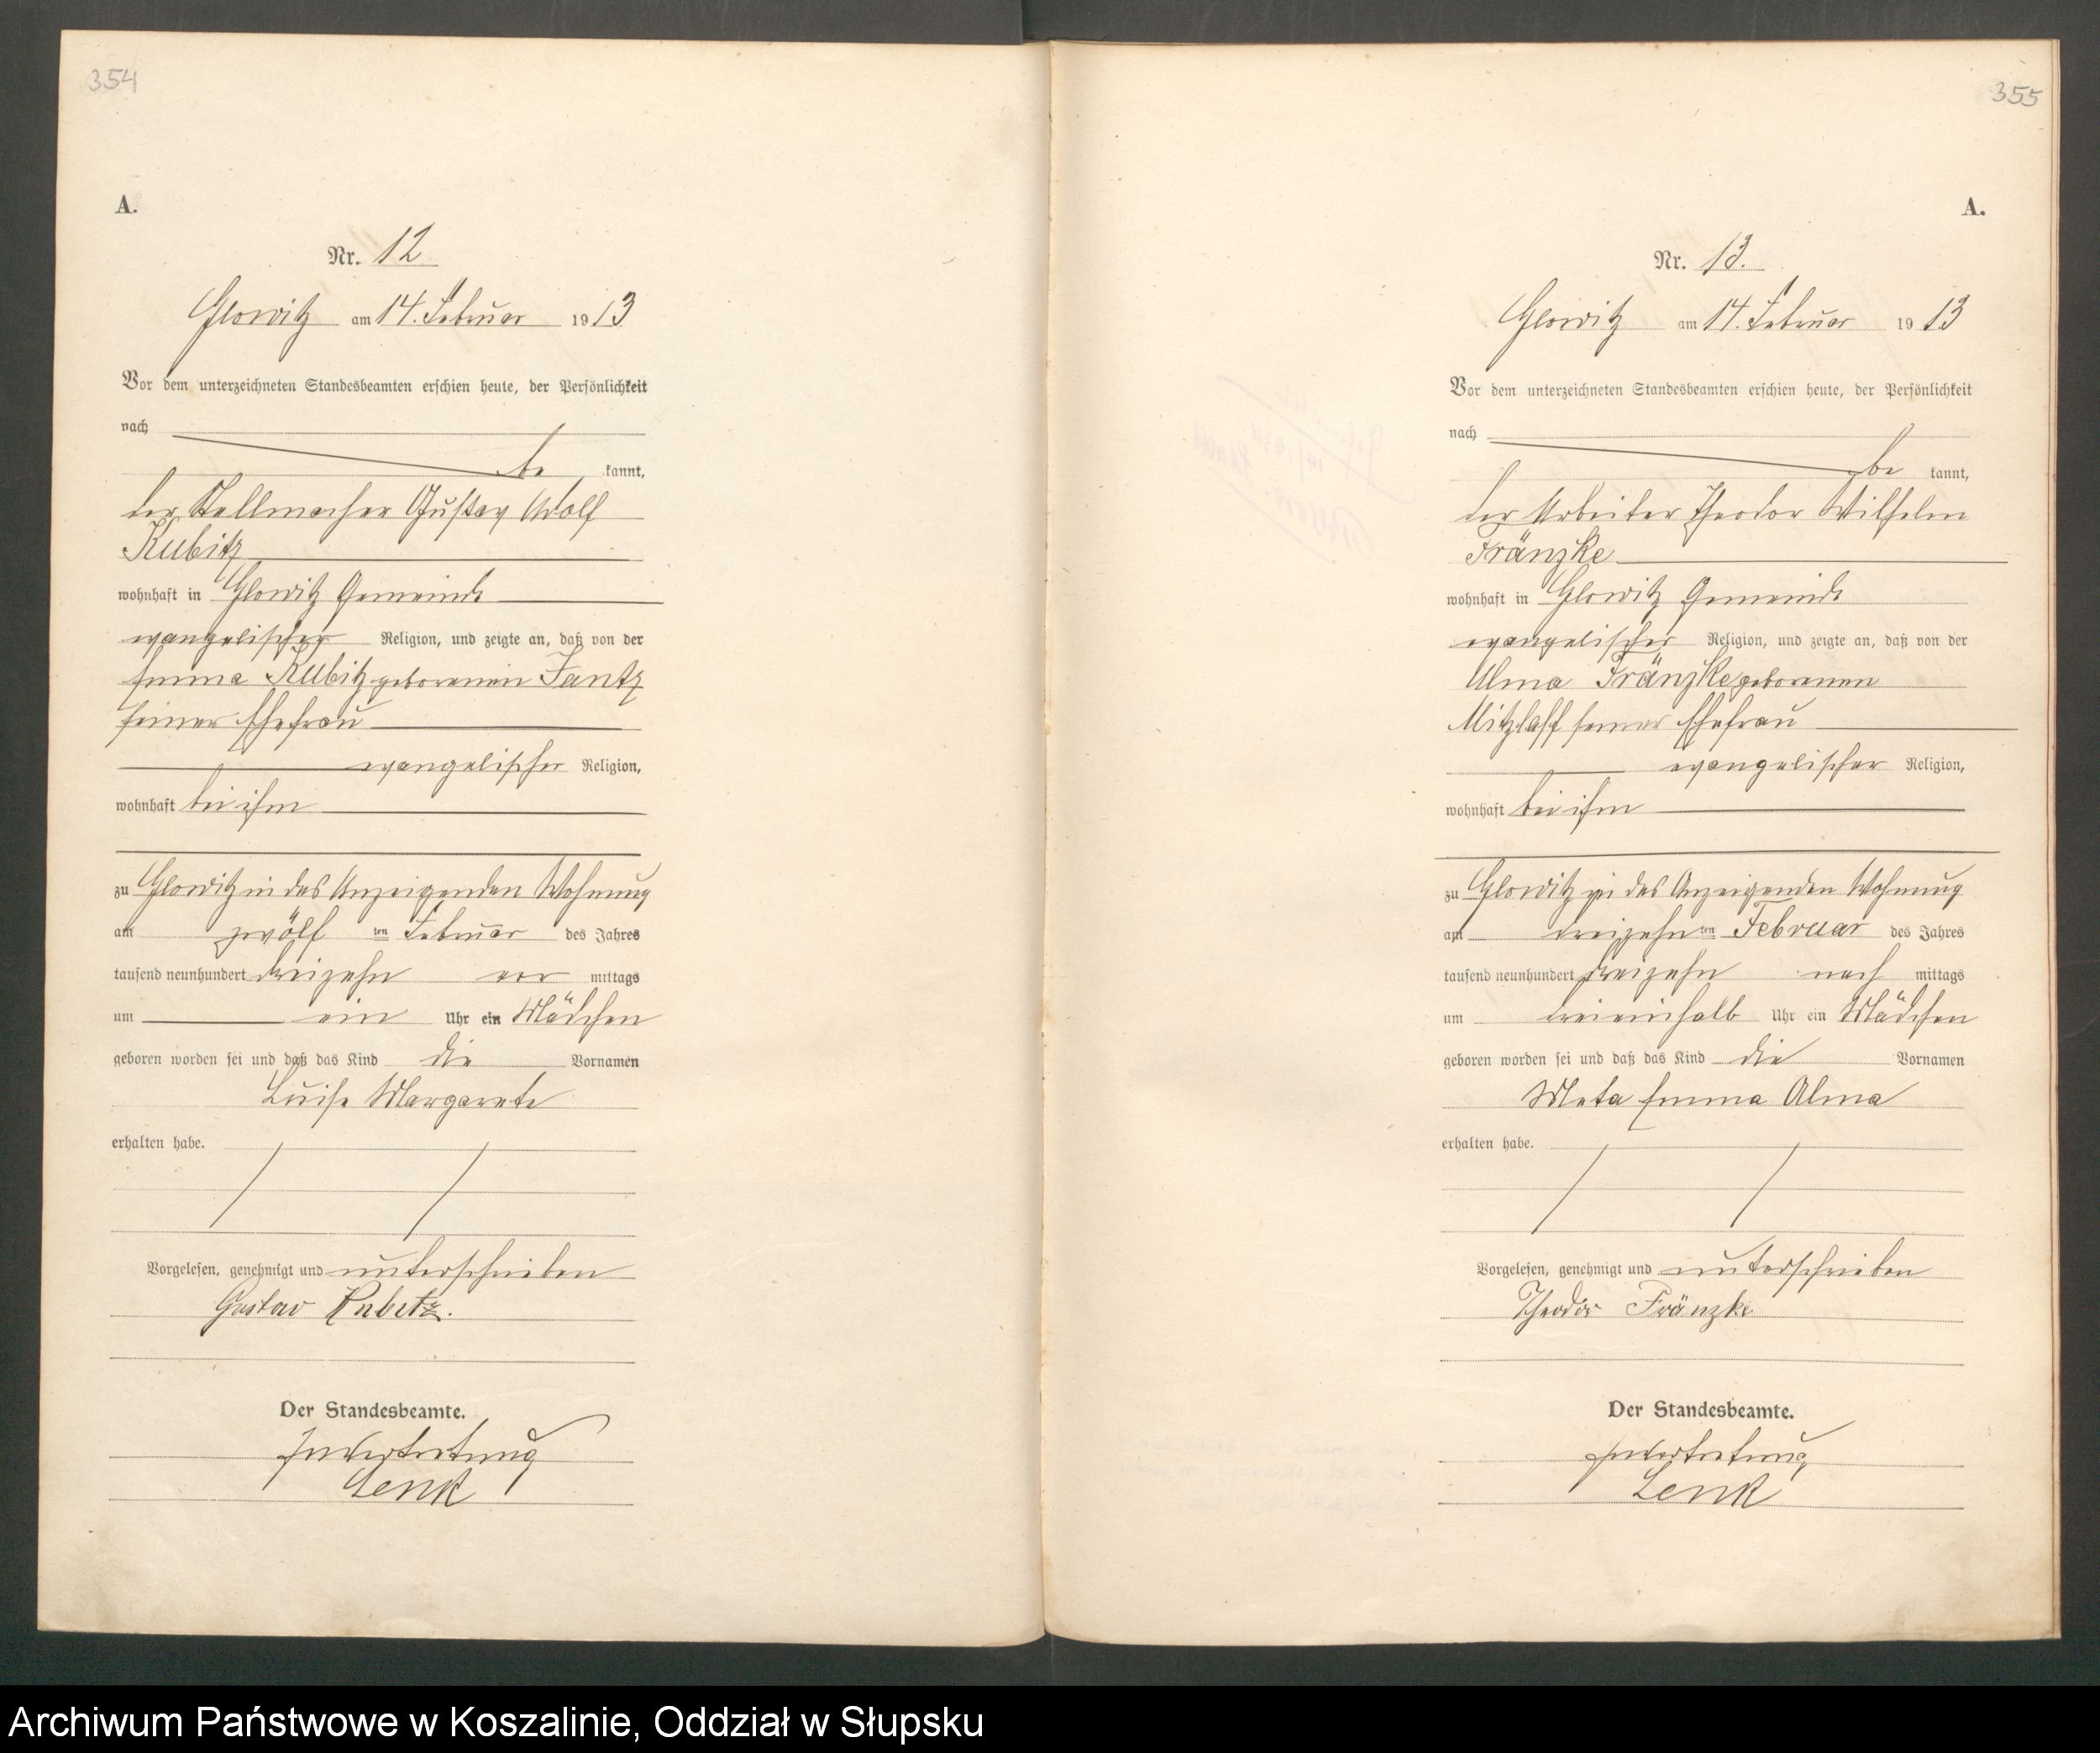 354
A.
Nr. 12
Glowitz am 14. Februar 1913
Vor dem unterzeichneten Standesbeamten erschien heute, der Persönlichkeit
nach
be kannt,
der Stellmacher Gustav Adolf
Kubitz
wohnhaft in Glowitz Gemeinde
evangelischer Religion, und zeigte an, daß von der
Emma Kubitz geborenen Jantz
seiner Ehefrau
evangelischer Religion,
wohnhaft bei ihm
zu Glowitz in des Anzeigenden Wohnung
am zwölf ten Februar des Jahres
tausend neunhundert dreizehn vor mittags
um ein Uhr ein Mädchen
geboren worden sei und daß das Kind die Vornamen
Luise Margarete
erhalten habe.
Vorgelesen, genehmigt und unterschrieben
Gustav Kubitz.
Der Standesbeamte.
In Vertretung
Lenk
355
A.
Nr. 13.
Glowitz am 14. Februar 1913
Vor dem unterzeichneten Standesbeamten erschien heute, der Persönlichkeit
nach
be kannt,
der Arbeiter Theodor Wilhelm
Fränzke
wohnhaft in Glowitz Gemeinde
evangelischer Religion, und zeigte an, daß von der
Alma Fränzke geborenen
Mitzlaff seiner Ehefrau
evangelischer Religion,
wohnhaft bei ihm
zu Glowitz in des Anzeigenden Wohnung
am dreizehn ten Februar des Jahres
tausend neunhundert dreizehn nach mittags
um dreieinhalb Uhr ein Mädchen
geboren worden sei und daß das Kind die Vornamen
Meta Emma Alma
erhalten habe.
Vorgelesen, genehmigt und unterschrieben
Theodor Fränzke
Der Standesbeamte.
In Vertretung
Lenk
Archiwum Państwowe w Koszalinie, Oddział w Słupsku